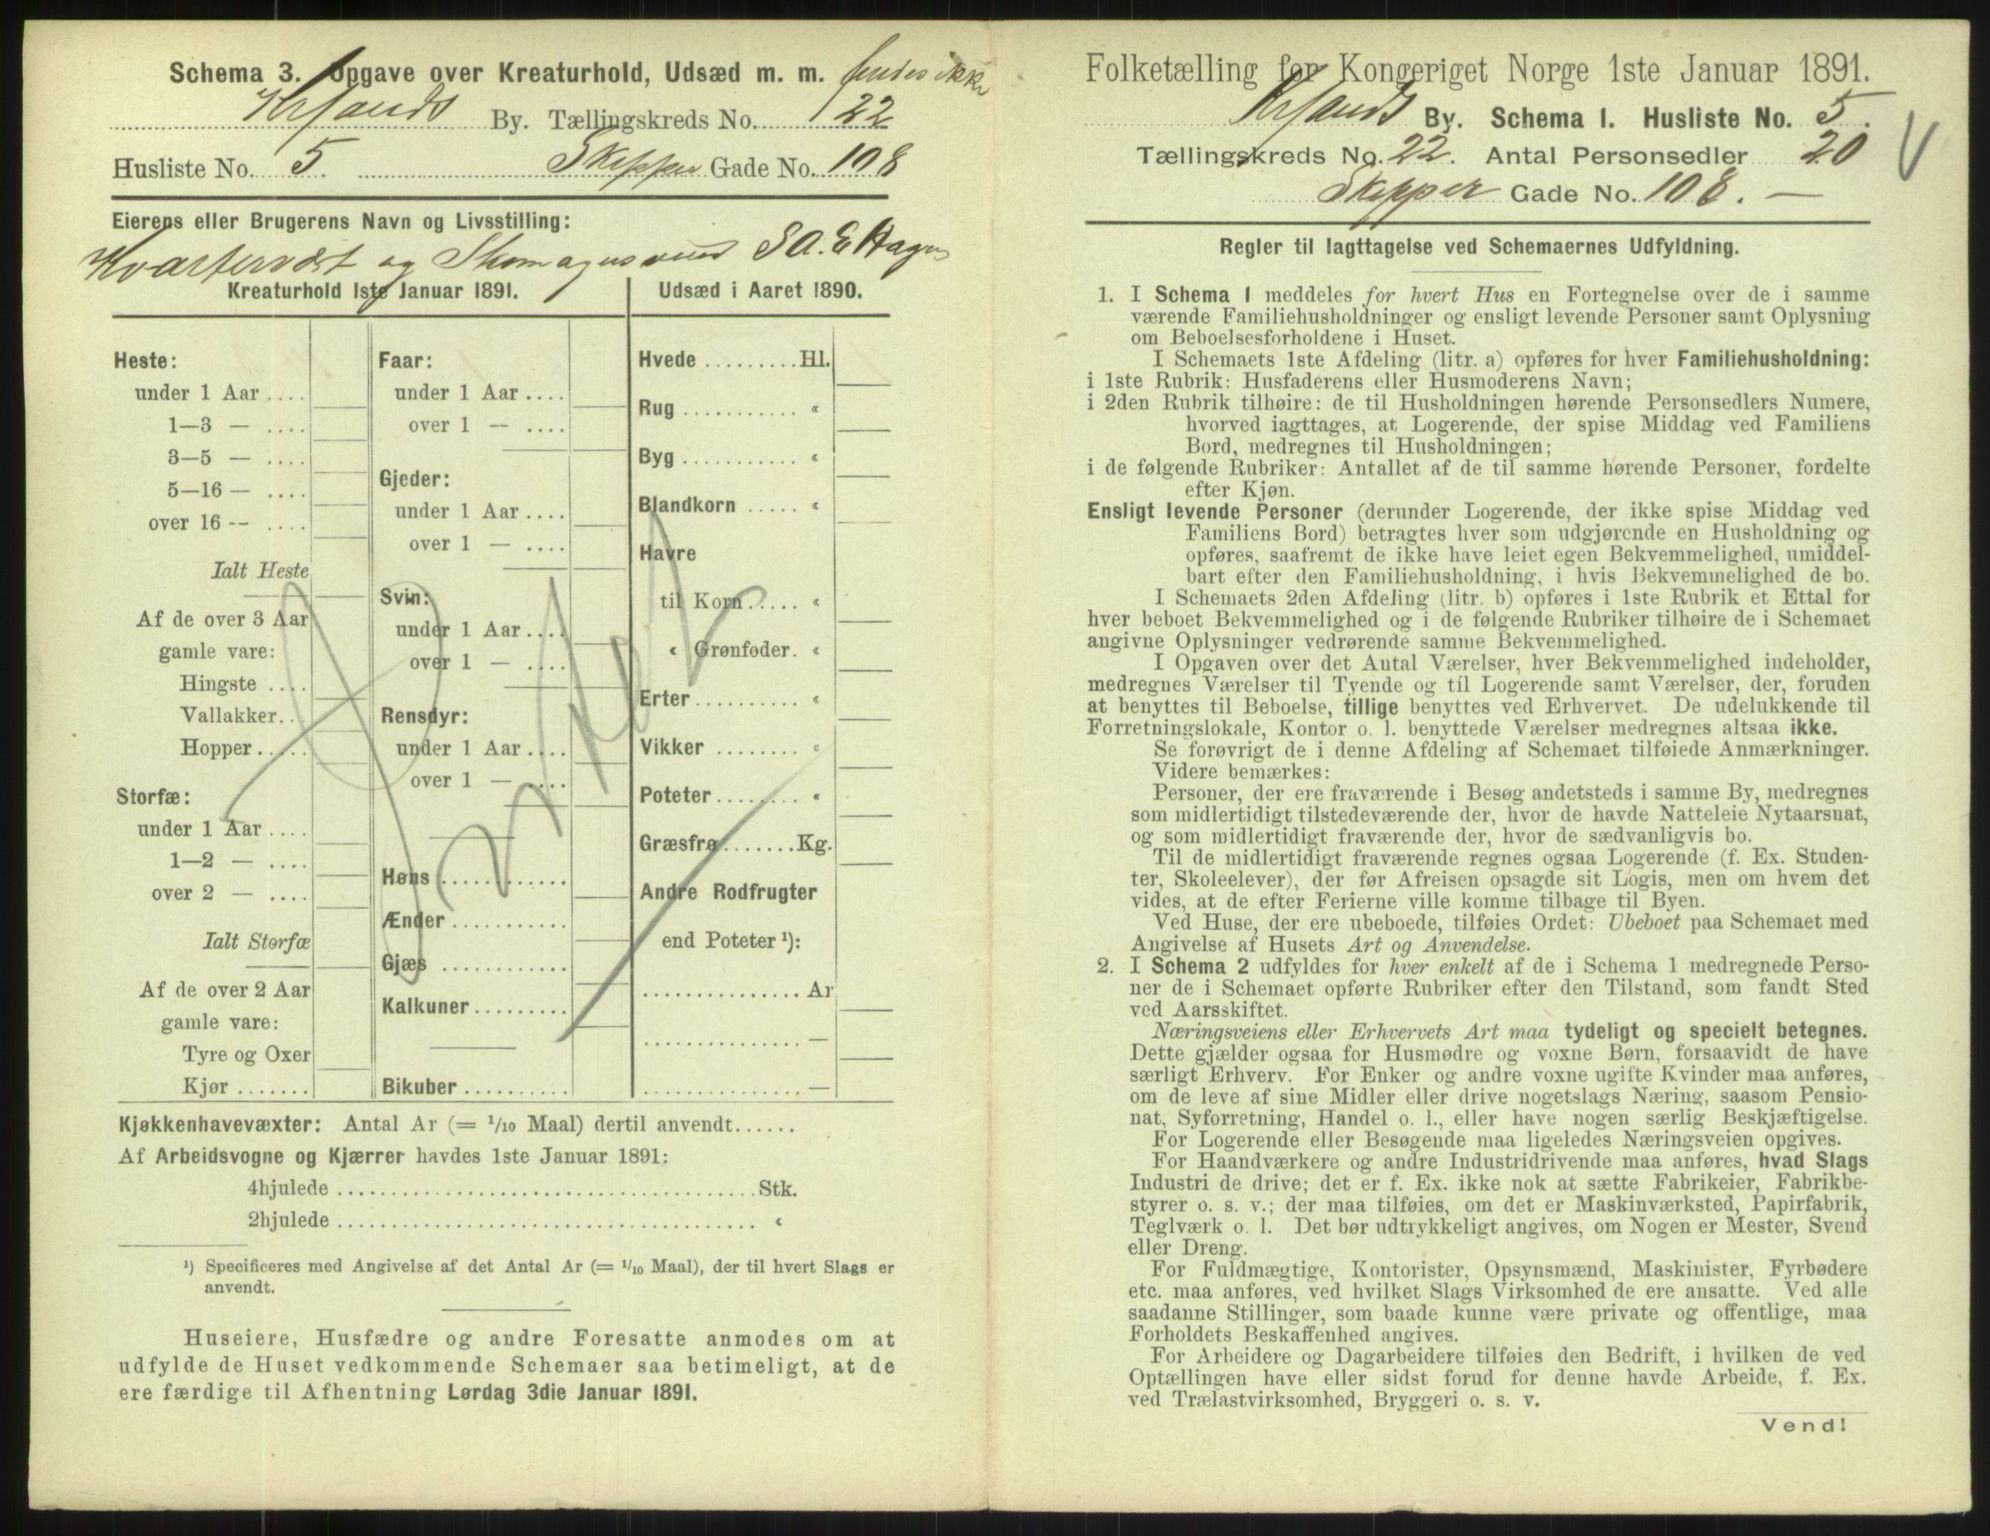 Schema 3. Opgave over Kreaturhold, Udsæd m. m. findes ikke
Krsands By. Tællingskreds No. 22
Husliste No. 5. Skipper Gade No. 108
Eierens eller Brugerens Navn og Livsstilling:
Kvartervægt og Skomagersvend S A. E Hagen
Kreaturhold 1ste Januar 1891.
Udsæd i Aaret 1890.
Heste:
under 1 Aar ....
1—3 — ....
3—5 — ....
5—16 — ....
over 16 -- ....
Ialt Heste
Af de over 3 Aar
gamle vare:
Hingste ....
Vallakker..
Hopper.....
Storfæ:
under 1 Aar ....
1—2 — ....
over 2 — ....
Ialt Storfæ
Af de over 2 Aar
gamle vare:
Tyre og Oxer
Kjør .......
Faar:
under 1 Aar ....
over 1 — ....
Gjeder:
under 1 Aar ....
over 1 — ....
Svin:
under 1 Aar ....
over 1 — ....
Rensdyr:
under 1 Aar ....
over 1 — ....
Høns ............
Ænder ...........
Gjæs ............
Kalkuner .........
Bikuber ..........
Hvede .........Hl.
Rug ........... «
Byg ........... «
Blandkorn ..... «
Havre
til Korn ..... «
« Grønfoder. «
Erter .......... «
Vikker ......... «
Poteter ........ «
Græsfrø .......Kg.
Andre Rodfrugter
end Poteter ¹):
............... Ar
............... —
............... —
Kjøkkenhavevæxter: Antal Ar (= 1/10 Maal) dertil anvendt......
Af Arbeidsvogne og Kjærrer havdes 1ste Januar 1891:
4hjulede ........................................ Stk.
2hjulede ........................................ «
¹) Specificeres med Angivelse af det Antal Ar (= 1/10 Maal), der til hvert Slags er
anvendt.
Huseiere, Husfædre og andre Foresatte anmodes om at
udfylde de Huset vedkommende Schemaer saa betimeligt, at de
ere færdige til Afhentning Lørdag 3die Januar 1891.
Folketælling for Kongeriget Norge 1ste Januar 1891.
Krsands By. Schema I. Husliste No. 5.
Tællingskreds No. 22. Antal Personsedler 20
Skipper Gade No. 108. —
Regler til Iagttagelse ved Schemaernes Udfyldning.
1. I Schema 1 meddeles for hvert Hus en Fortegnelse over de i samme
værende Familiehusholdninger og ensligt levende Personer samt Oplysning
om Beboelsesforholdene i Huset.
I Schemaets 1ste Afdeling (litr. a) opføres for hver Familiehusholdning:
i 1ste Rubrik: Husfaderens eller Husmoderens Navn;
i 2den Rubrik tilhøire: de til Husholdningen hørende Personsedlers Numere,
hvorved iagttages, at Logerende, der spise Middag ved Familiens
Bord, medregnes til Husholdningen;
i de følgende Rubriker: Antallet af de til samme hørende Personer, fordelte
efter Kjøn.
Ensligt levende Personer (derunder Logerende, der ikke spise Middag ved
Familiens Bord) betragtes hver som udgjørende en Husholdning og
opføres, saafremt de ikke have leiet egen Bekvemmelighed, umiddel-
bart efter den Familiehusholdning, i hvis Bekvemmelighed de bo.
I Schemaets 2den Afdeling (litr. b) opføres i 1ste Rubrik et Ettal for
hver beboet Bekvemmelighed og i de følgende Rubriker tilhøire de i Schemaet
angivne Oplysninger vedrørende samme Bekvemmelighed.
I Opgaven over det Antal Værelser, hver Bekvemmelighed indeholder,
medregnes Værelser til Tyende og til Logerende samt Værelser, der, foruden
at benyttes til Beboelse, tillige benyttes ved Erhvervet. De udelukkende til
Forretningslokale, Kontor o. l. benyttede Værelser medregnes altsaa ikke.
Se forøvrigt de i denne Afdeling af Schemaet tilføiede Anmærkninger.
Videre bemærkes:
Personer, der ere fraværende i Besøg andetsteds i samme By, medregnes
som midlertidigt tilstedeværende der, hvor de havde Natteleie Nytaarsnat,
og som midlertidigt fraværende der, hvor de sædvanligvis bo.
Til de midlertidigt fraværende regnes ogsaa Logerende (f. Ex. Studen-
ter, Skoleelever), der før Afreisen opsagde sit Logis, men om hvem det
vides, at de efter Ferierne ville komme tilbage til Byen.
Ved Huse, der ere ubeboede, tilføies Ordet: Ubeboet paa Schemaet med
Angivelse af Husets Art og Anvendelse.
2. I Schema 2 udfyldes for hver enkelt af de i Schema 1 medregnede Perso-
ner de i Schemaet opførte Rubriker efter den Tilstand, som fandt Sted
ved Aarsskiftet.
Næringsveiens eller Erhvervets Art maa tydeligt og specielt betegnes.
Dette gjælder ogsaa for Husmødre og voxne Børn, forsaavidt de have
særligt Erhverv. For Enker og andre voxne ugifte Kvinder maa anføres,
om de leve af sine Midler eller drive nogetslags Næring, saasom Pensio-
nat, Syforretning, Handel o. l., eller have nogen særlig Beskjæftigelse.
For Logerende eller Besøgende maa ligeledes Næringsveien opgives.
For Haandværkere og andre Industridrivende maa anføres, hvad Slags
Industri de drive; det er f. Ex. ikke nok at sætte Fabrikeier, Fabrikbe-
styrer o. s. v.; der maa tilføies, om det er Maskinværksted, Papirfabrik,
Teglværk o. l. Det bør udtrykkeligt angives, om Nogen er Mester, Svend
eller Dreng.
For Fuldmægtige, Kontorister, Opsynsmænd, Maskinister, Fyrbødere
etc. maa anføres, ved hvilket Slags Virksomhed de ere ansatte. Ved alle
saadanne Stillinger, som baade kunne være private og offentlige, maa
Forholdets Beskaffenhed angives.
For Arbeidere og Dagarbeidere tilføies den Bedrift, i hvilken de ved
Optællingen have eller sidst forud for denne havde Arbeide, f. Ex.
ved Trælastvirksomhed, Bryggeri o. s. v.
Vend!